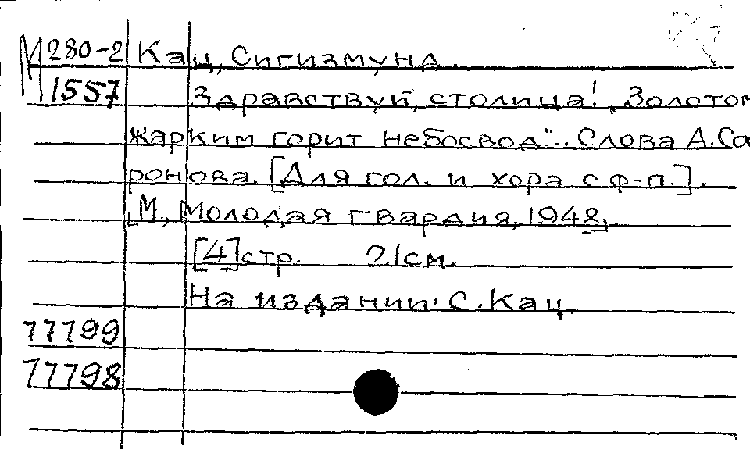 М 280-2 Кац, Сигизмунд.
1557 Здравствуй, столица! „Золотом
жарким горит небосвод“. Слова А.Со
ронова. [Для гол. и хора с ф-п.].
[М., Молодая гвардия, 1948].
[4] стр. 21см.
На издании: С. Кац.
77799
77798